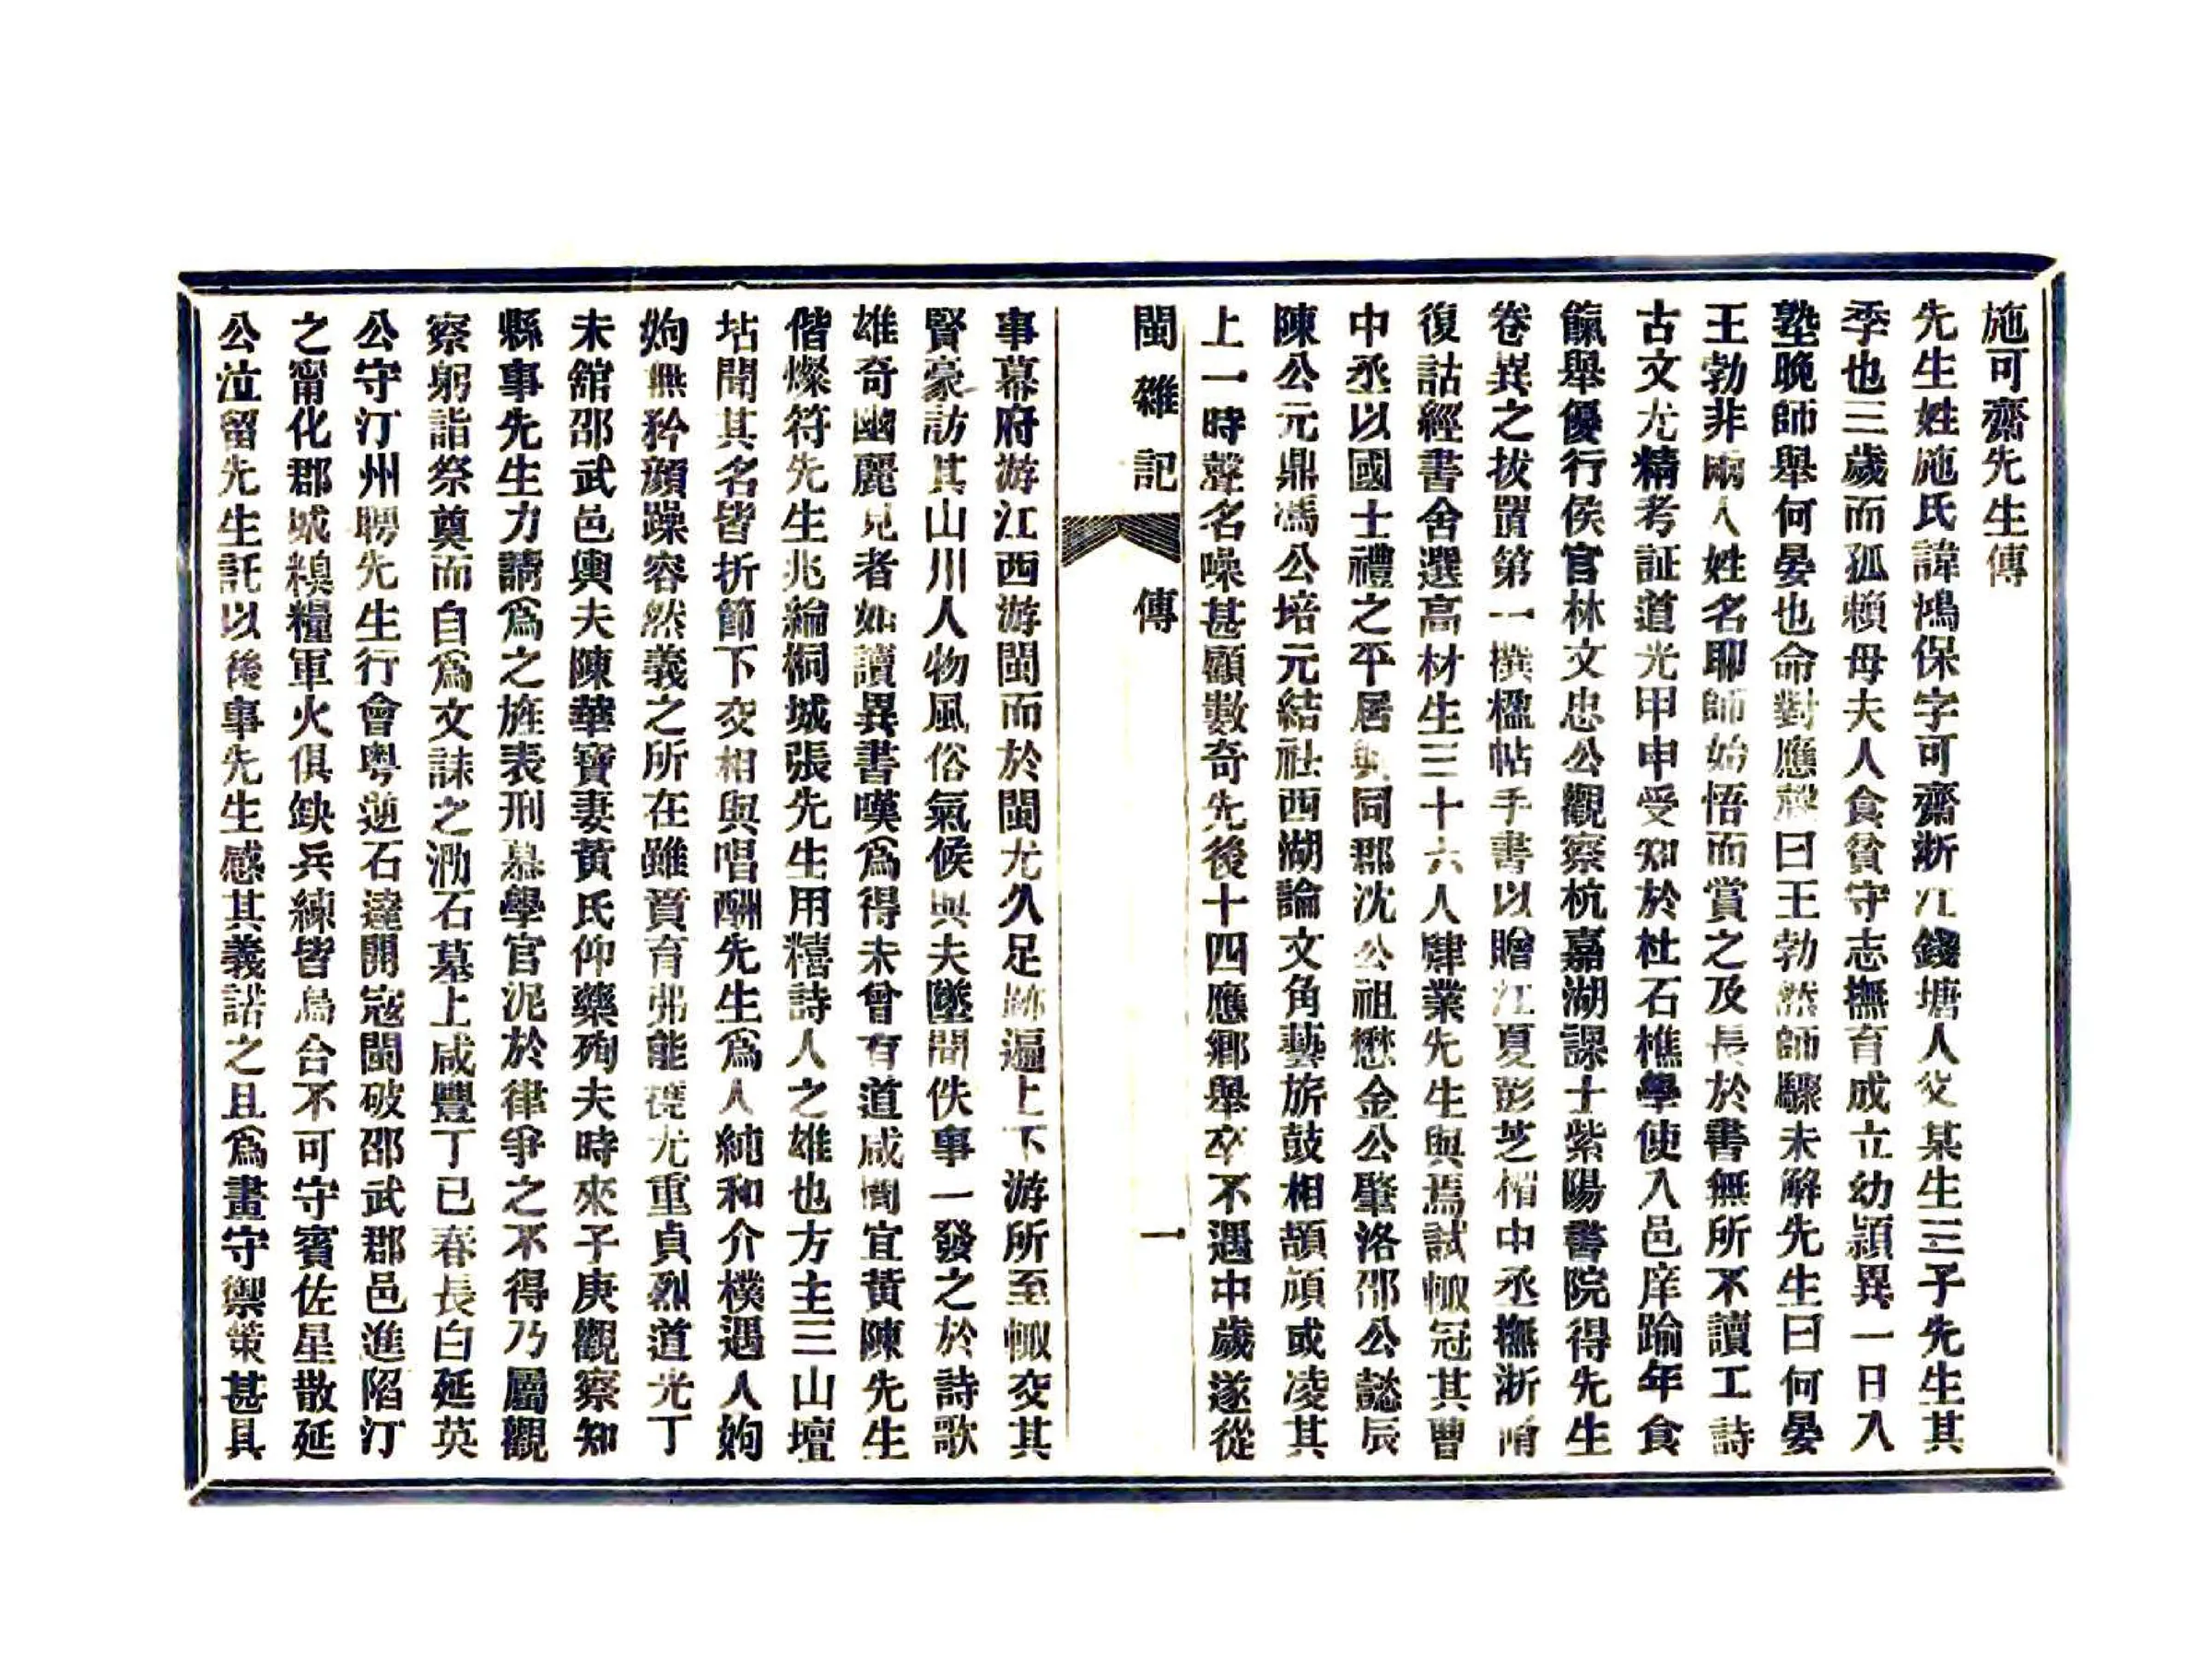 施可齋先生傳
先生姓施氏諱鴻保字可齋浙江錢塘人父某生三子先生其
季也三歲而孤賴母夫人食貧守志撫育成立幼穎異一日入
塾晚師舉何晏也命對應聲曰王勃然師驟未解先生曰何晏
王勃非兩人姓名耶師始悟而賞之及長於書無所不讀工詩
古文尤精考証道光甲申受知於杜石樵學使入邑庠踰年食
餼舉優行侯官林文忠公觀察杭嘉湖課士紫陽書院得先生
卷異之拔置第一撰楹帖手書以贈江夏彭芝楣中丞撫浙時
復詁經書舍選高材生三十六人肄業先生與焉試輙冠其曹
中丞以國士禮之平居與同郡沈公祖懋金公肇洛邵公懿辰
陳公元鼎馮公培元結社西湖論文角藝旂鼓相頡頏或凌其
上一時聲名噪甚顧數奇先後十四應鄉舉卒不遇中歲遂從
閩雜記 傳 一
事幕府游江西游閩而於閩尤久足跡遍上下游所至輙交其
賢豪訪其山川人物風俗氣候與夫墜聞佚事一發之於詩歌
雄奇幽麗見者如讀異書嘆爲得未曾有道咸間宜黃陳先生
偕燦符先生兆綸桐城張先生用糦詩人之雄也方主三山壇
坫聞其名皆折節下交相與唱酬先生爲人純和介樸遇人姁
姁無矜顏躁容然義之所在雖賁育弗能撓尤重貞烈道光丁
未舘邵武邑輿夫陳華寶妻黃氏仰藥殉夫時來子庚觀察知
縣事先生力請爲之旌表刑幕學官泥於律爭之不得乃屬觀
察躬詣祭奠而自爲文誄之泐石墓上咸豐丁巳春長白延英
公守汀州聘先生行會粤逆石達開寇閩破邵武郡邑進陷汀
之甯化郡城糗糧軍火俱鈌兵練皆烏合不可守賓佐星散延
公泣留先生託以後事先生感其義諾之且爲畫守禦策甚具